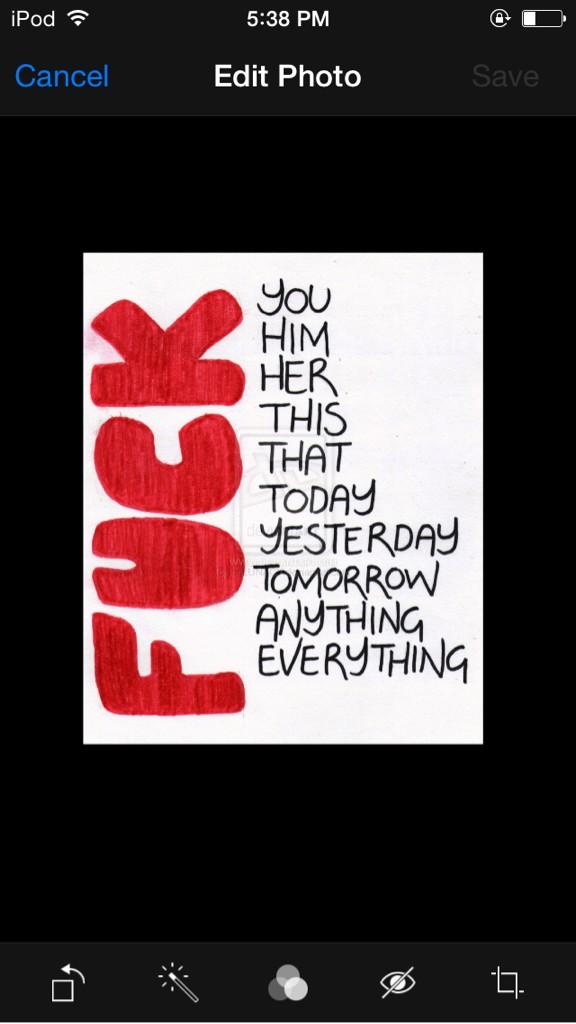 iPod 5:38 PM
Cancel Edit Photo Save
FUCK
YOU
HIM
HER
THIS
THAT
TODAY
YESTERDAY
TOMORROW
ANYTHING
EVERYTHING